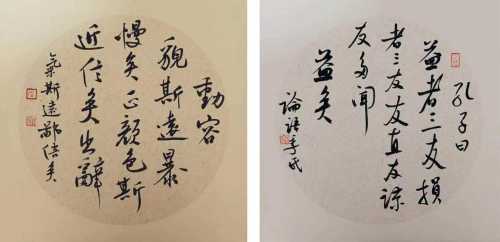 動容
貌斯遠暴
慢矣正顔色斯
近信矣出辭
氣斯遠鄙倍矣
孔子曰
益者三友損
者三友友直友諒
友多聞
益矣
論語季氏